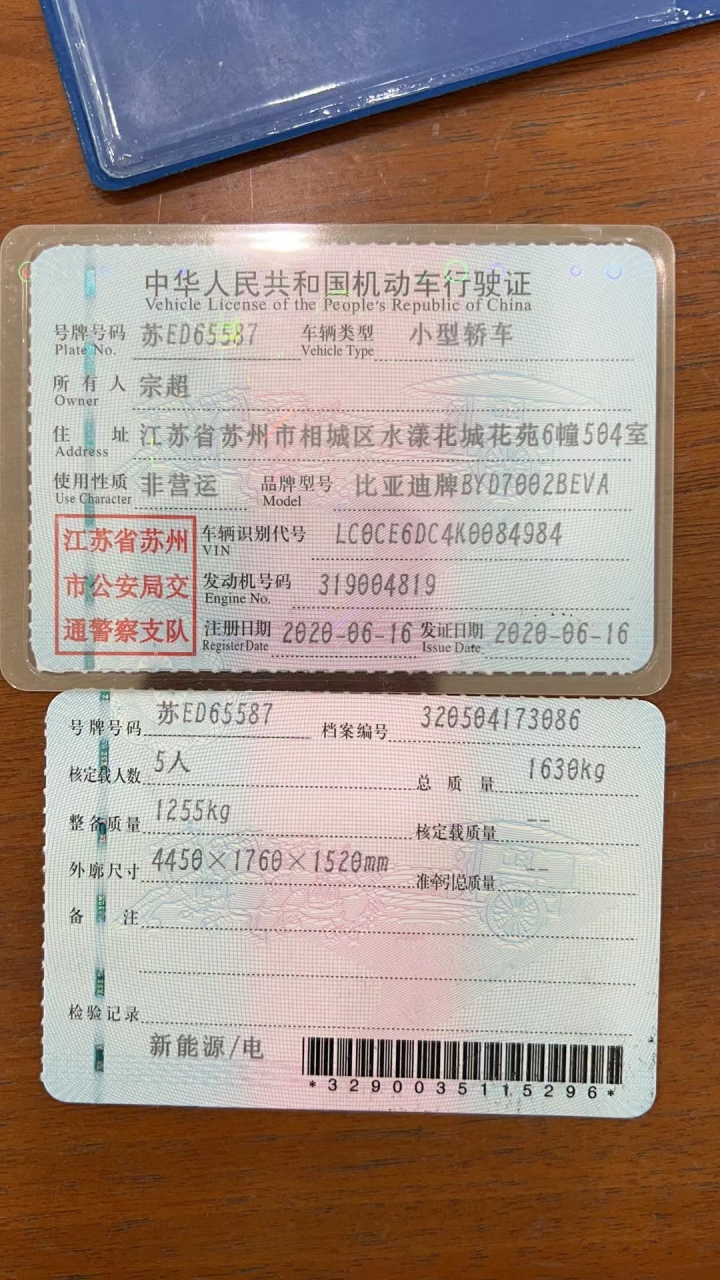 中华人民共和国机动车行驶证
Vehicle License of the People's Republic of China
号牌号码 苏ED65587 车辆类型 小型轿车
Plate No. Vehicle Type
所有人 宗超
Owner
住址 江苏省苏州市相城区水漾花城花苑6幢504室
Address
使用性质 非营运 品牌型号 比亚迪牌BYD7002BEVA
Use Character Model
江苏省苏州
市公安局交
通警察支队
车辆识别代号 LC0CE6DC4K0084984
VIN
发动机号码 319004819
Engine No.
注册日期 2020-06-16 发证日期 2020-06-16
Register Date Issue Date
号牌号码 苏ED65587 档案编号 320504173086
核定载人数 5人 总质量 1630kg
整备质量 1255kg 核定载质量 --
外廓尺寸 4450×1760×1520mm 准牵引总质量 --
备注
检验记录
新能源/电
*3290035115296*